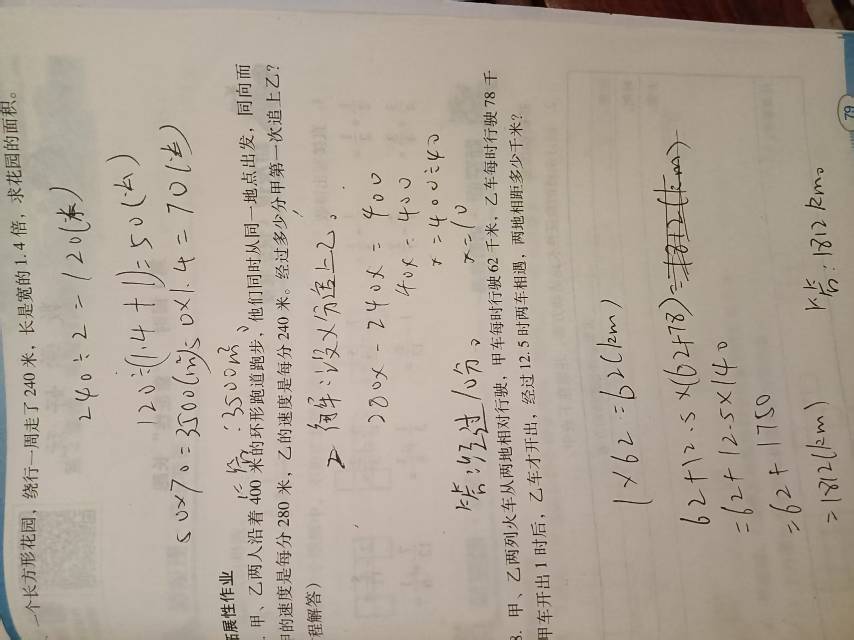 一个长方形花园，绕行一周走了 240 米，长是宽的 1.4 倍，求花园的面积。
240÷2=120(米)
120÷(1.4+1)=50(米)
50×1.4=70(米)
50×70=3500(m²)
答:3500m²。
拓展性作业
甲、乙两人沿着 400 米的环形跑道跑步，他们同时从同一地点出发，同向而
甲的速度是每分 280 米，乙的速度是每分 240 米。经过多少分甲第一次追上乙？
程解答）
解:设x分追上乙。
280x-240x=400
40x=400
x=400÷40
x=10
答:经过10分。
3. 甲、乙两列火车从两地相对行驶，甲车每时行驶 62 千米，乙车每时行驶 78 千
甲车开出 1 时后，乙车才开出，经过 12.5 时两车相遇，两地相距多少千米？
1×62=62(km)
62+12.5×(62+78)=1812(km)
=62+12.5×140
=62+1750
=1812(km)
答:1812km。
79